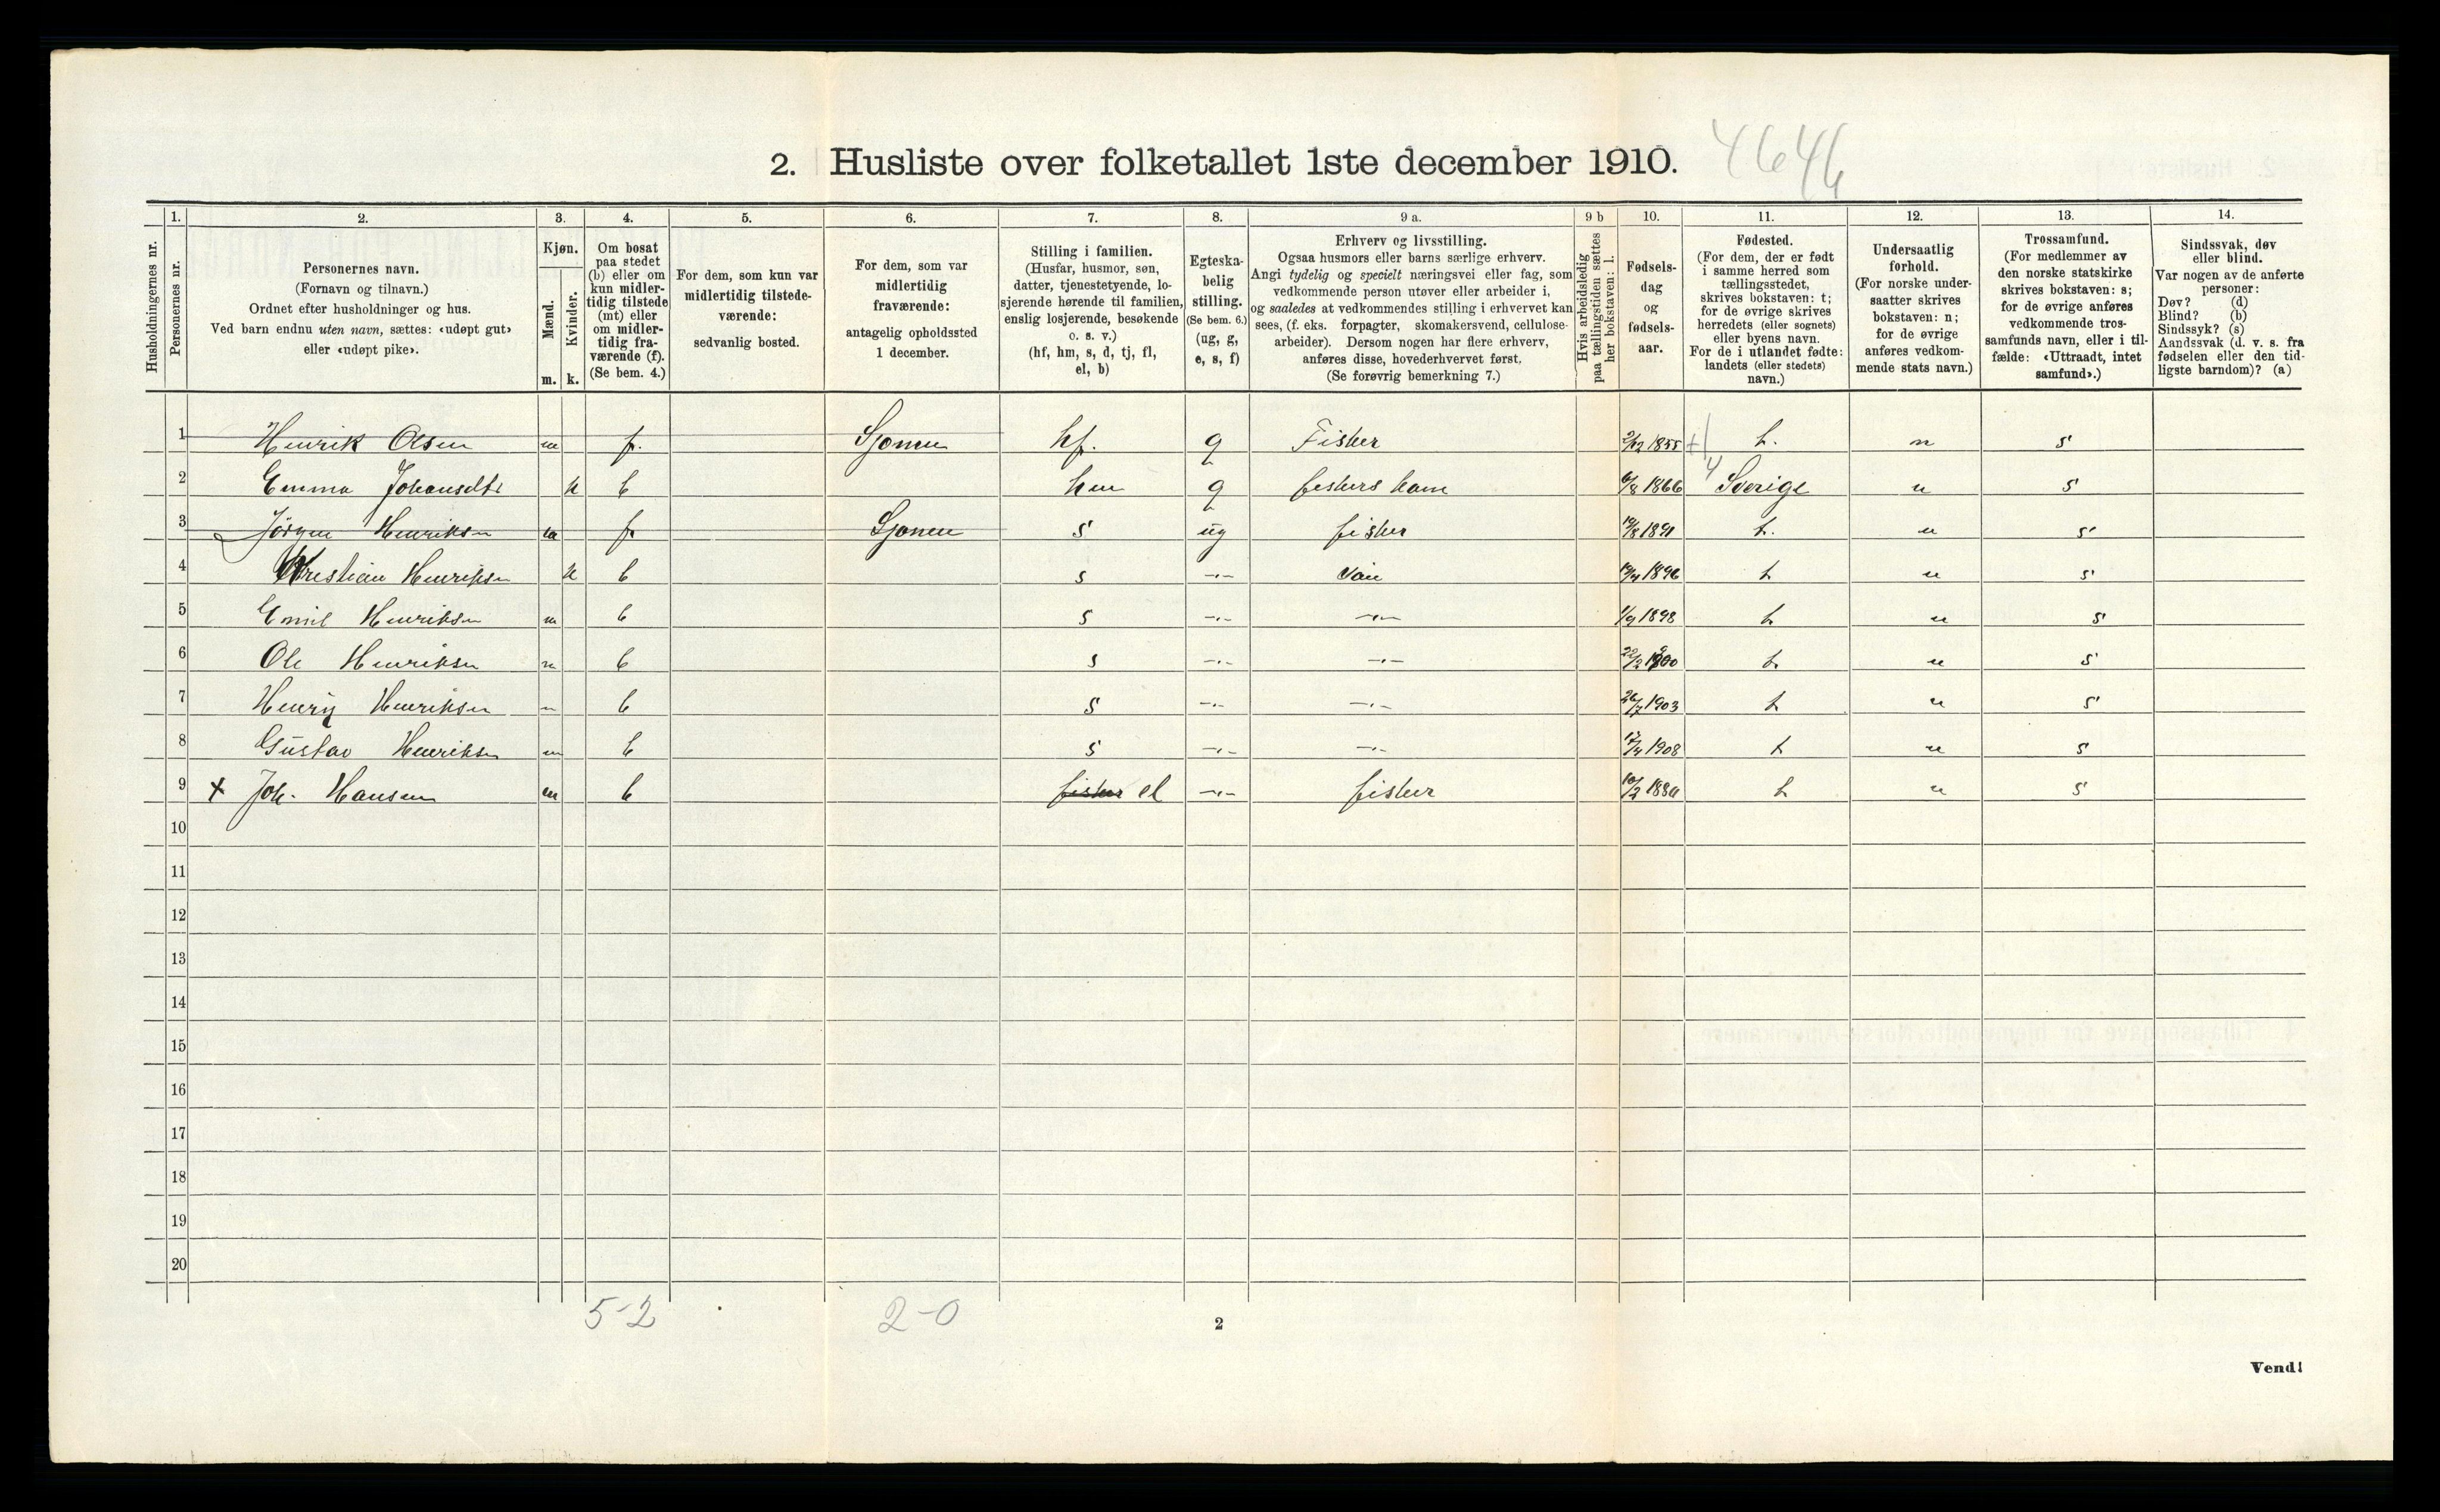 2. Husliste over folketallet 1ste december 1910. 4646
Husholdningernes nr.
1.
Personernes nr.
2.
Personernes navn.
(Fornavn og tilnavn.)
Ordnet efter husholdninger og hus.
Ved barn endnu uten navn, sættes: «udøpt gut»
eller «udøpt pike».
3.
Kjøn.
Mænd.
Kvinder.
m. k.
4.
Om bosat
paa stedet
(b) eller om
kun midler-
tidig tilstede
(mt) eller
om midler-
tidig fra-
værende (f).
(Se bem. 4.)
5.
For dem, som kun var
midlertidig tilstede-
værende:
sedvanlig bosted.
6.
For dem, som var
midlertidig
fraværende:
antagelig opholdssted
1 december.
7.
Stilling i familien.
(Husfar, husmor, søn,
datter, tjenestetyende, lo-
sjerende hørende til familien,
enslig losjerende, besøkende
o. s. v.)
(hf, hm, s, d, tj, fl,
el, b)
8.
Egteska-
belig
stilling.
(Se bem. 6.)
(ug, g,
e, s, f)
9 a.
Erhverv og livsstilling.
Ogsaa husmors eller barns særlige erhverv.
Angi tydelig og specielt næringsvei eller fag, som
vedkommende person utøver eller arbeider i,
og saaledes at vedkommendes stilling i erhvervet kan
sees, (f. eks. forpagter, skomakersvend, cellulose-
arbeider). Dersom nogen har flere erhverv,
anføres disse, hovederhvervet først.
(Se forøvrig bemerkning 7.)
9 b
Hvis arbeidsledig
paa tællingstiden sættes
her bokstaven: l.
10.
Fødsels-
dag
og
fødsels-
aar.
11.
Fødested.
(For dem, der er født
i samme herred som
tællingsstedet,
skrives bokstaven: t;
for de øvrige skrives
herredets (eller sognets)
eller byens navn.
For de i utlandet fødte:
landets (eller stedets)
navn.)
12.
Undersaatlig
forhold.
(For norske under-
saatter skrives
bokstaven: n;
for de øvrige
anføres vedkom-
mende stats navn.)
13.
Trossamfund.
(For medlemmer av
den norske statskirke
skrives bokstaven: s;
for de øvrige anføres
vedkommende tros-
samfunds navn, eller i til-
fælde: «Uttraadt, intet
samfund».)
14.
Sindssvak, døv
eller blind.
Var nogen av de anførte
personer:
Døv? (d)
Blind? (b)
Sindssyk? (s)
Aandssvak (d. v. s. fra
fødselen eller den tid-
ligste barndom)? (a)
1 Henrik Olsen m f. Sjonen hf. g Fisker 2/12 1855 t. n s
2 Emma Johansdtr k b hm g fiskers kone 6/8 1866 Sverige n s
3 Jörgen Henriksen m f Sjonen s ug fisker 19/8 1891 t. n s
4 Kristian Henriksen k b s -"- 1896 t n s
5 Emil Henriksen m b s -"- -"- 1/9 1898 t n s
6 Ole Henriksen m b s -"- -"- 22/2 1900 t. n s
7 Henry Henriksen m b s -"- -"- 26/7 1903 t n s
8 Gustav Henriksen m b s -"- -"- 17/4 1908 t n s
9 x Joh. Hansen m b fisker el -"- fisker t n s
10
11
12
13
14
15
16
17
18
19
20
5-2 2-0
2
Vend!